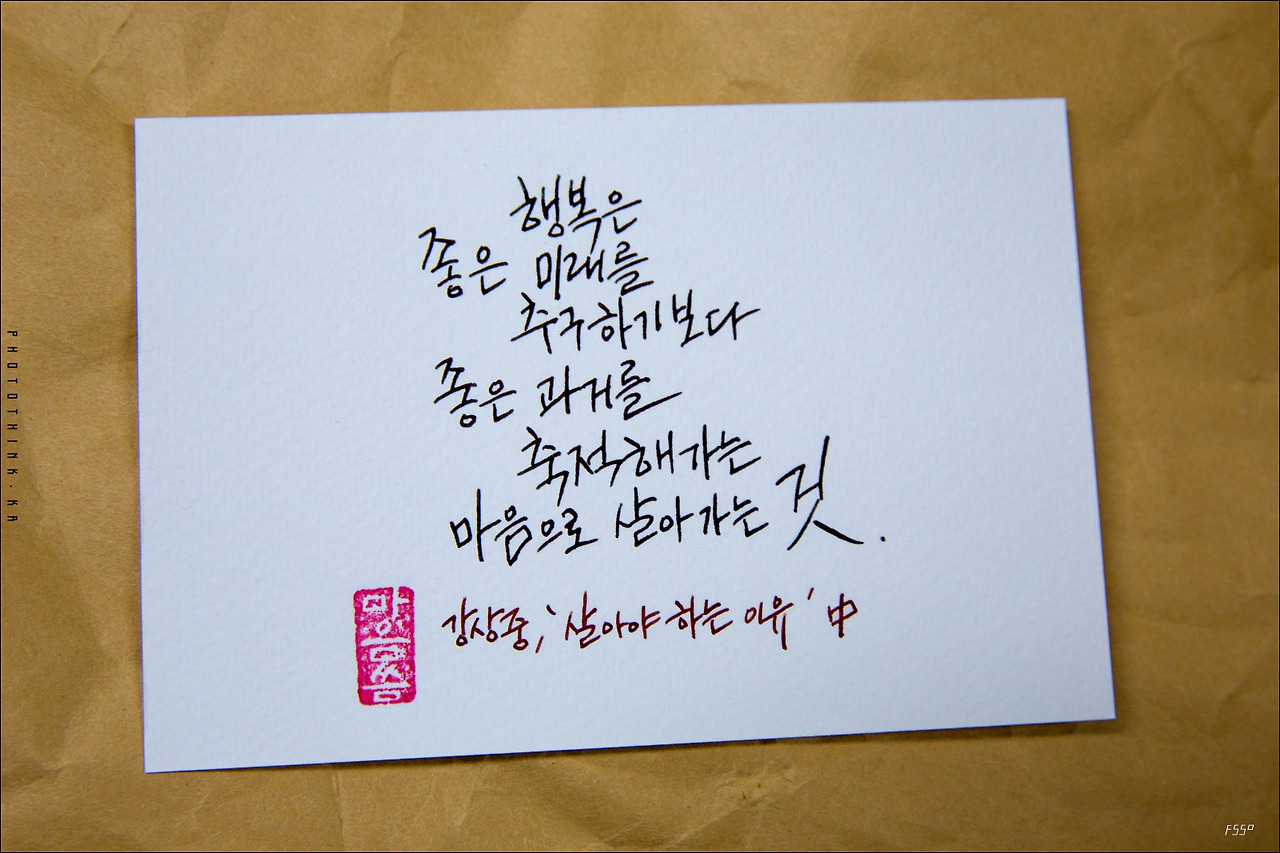 행복은
좋은 미래를
추구하기보다
좋은 과거를
축적해가는
마음으로 살아가는 것.
강상중, '살아야 하는 이유' 中
PHOTOTHINK.KA
FSSo